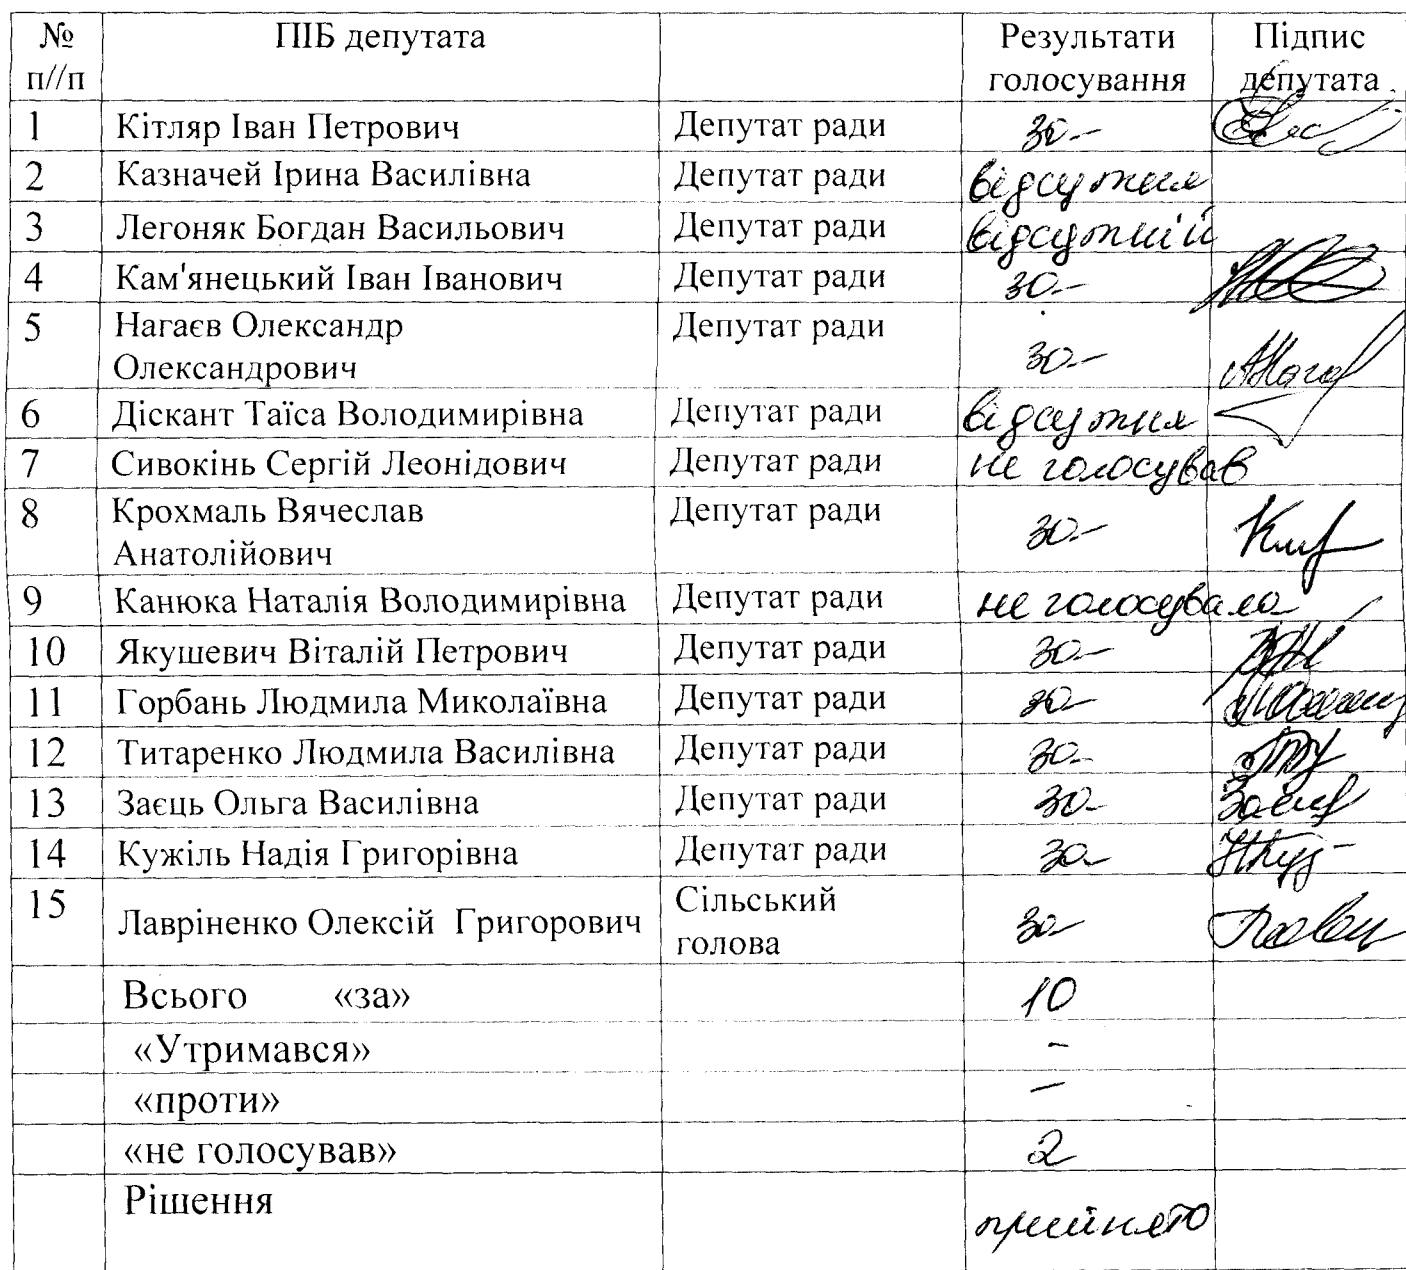 № ПІБ депутата Результати Підпис
п//п голосування депутата
1 Кітляр Іван Петрович Депутат ради за
2 Казначей Ірина Василівна Депутат ради відсутня
3 Легоняк Богдан Васильович Депутат ради відсутній
4 Кам'янецький Іван Іванович Депутат ради за
5 Нагаєв Олександр Депутат ради
Олександрович за
6 Діскант Таїса Володимирівна Депутат ради відсутня
7 Сивокінь Сергій Леонідович Депутат ради не голосував
8 Крохмаль Вячеслав Депутат ради
Анатолійович за
9 Канюка Наталія Володимирівна Депутат ради не голосувала
10 Якушевич Віталій Петрович Депутат ради за
11 Горбань Людмила Миколаївна Депутат ради за
12 Титаренко Людмила Василівна Депутат ради за
13 Заєць Ольга Василівна Депутат ради за
14 Кужіль Надія Григорівна Депутат ради за
15 Лавріненко Олексій Григорович Сільський за
голова
Всього «за» 10
«Утримався» -
«проти» -
«не голосував» 2
Рішення прийнято